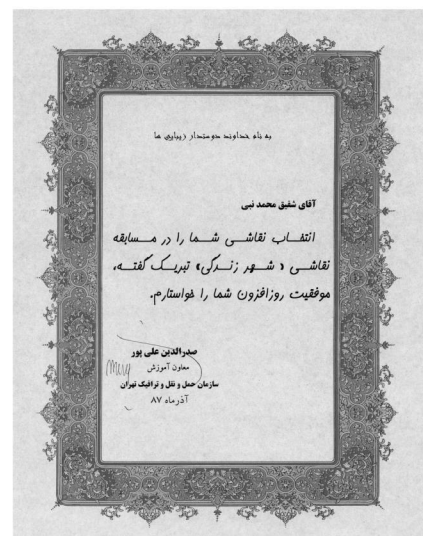 به نام خداوند دوستدار زیبایی ها
آقای شفیق محمد نبی
انتخاب نقاشی شما را در مسابقه
نقاشی «شهر زندگی» تبریک گفته،
موفقیت روزافزون شما را خواستارم.
صدرالدین علی پور
معاون آموزش
سازمان حمل و نقل و ترافیک تهران
آذر ماه ۸۷